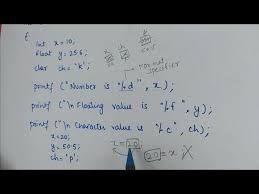 {
int x=10;
float y=25.6;
char ch='k';
format
specifier
printf ("Number is "%d", x);
printf ("\n Floating value is "%f", y);
printf ("\n Character value is %c", ch);
x=20;
y=50.5;
ch='p';
x=20;
20=x;